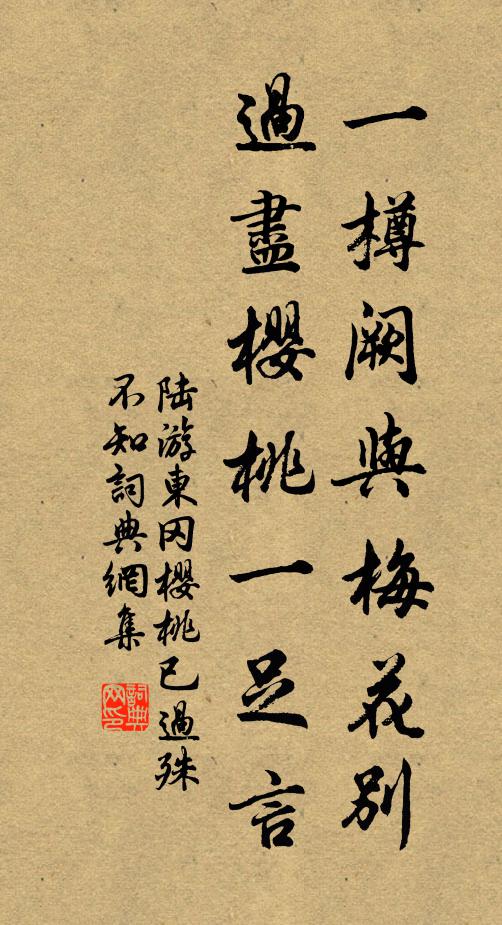 一樽阙與梅花别
過盡櫻桃一足言
陆游東冈櫻桃已過殊
不知詞典網集
詞典网印